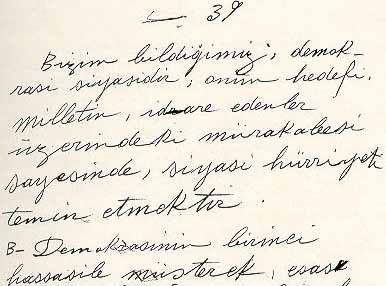 — 39
Bizim bildiğimiz, demok-
rasi siyasidir; onun hedefi,
milletin, idare edenler
üzerindeki mürakabesi
sayesinde, siyasi hürriyet
temin etmektir.
B- Demokrasinin birinci
hassasile müşterek, esas